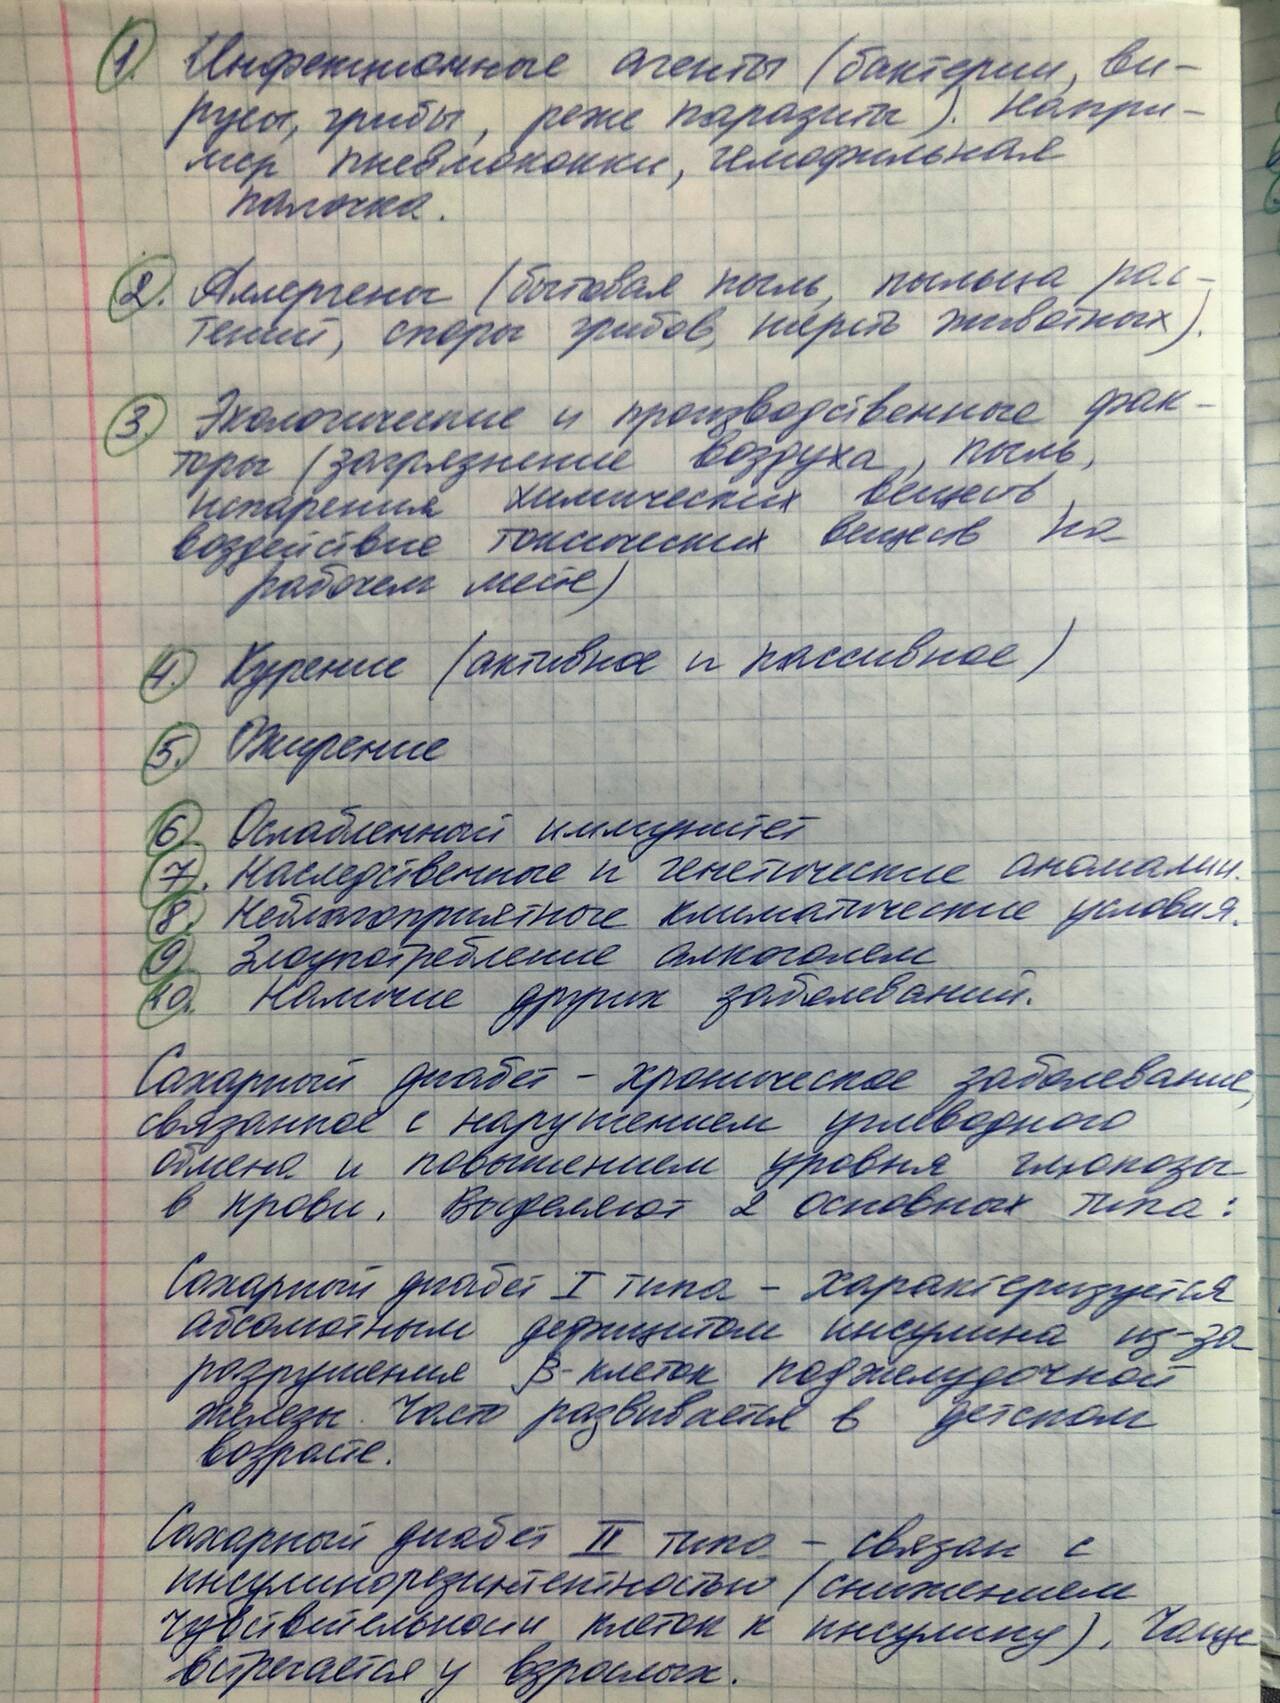 1. Инфекционные агенты (бактерии, ви-
русы, грибы, реже паразиты). Напри-
мер пневмококки, гемофильная
палочка.
2. Аллергены (бытовая пыль, пыльца рас-
тений, споры грибов, шерсть животных).
3. Экологические и производственные фак-
торы (загрязнение воздуха, пыль,
испарения химических веществ,
воздействие токсических веществ на
рабочем месте)
4. Курение (активное и пассивное)
5. Ожирение
6. Ослабленный иммунитет
7. Наследственные и генетические аномалии.
8. Неблагоприятные климатические условия.
9. Злоупотребление алкоголем
10. Наличие других заболеваний.
Сахарный диабет - хроническое заболевание,
связанное с нарушением углеводного
обмена и повышением уровня глюкозы
в крови. Выделяют 2 основных типа:
Сахарный диабет I типа - характеризуется
абсолютным дефицитом инсулина из-за
разрушения β-клеток поджелудочной
железы. Часто развивается в детском
возрасте.
Сахарный диабет II типа - связан с
инсулинорезистентностью (снижением
чувствительности клеток к инсулину). Чаще
встречается у взрослых.